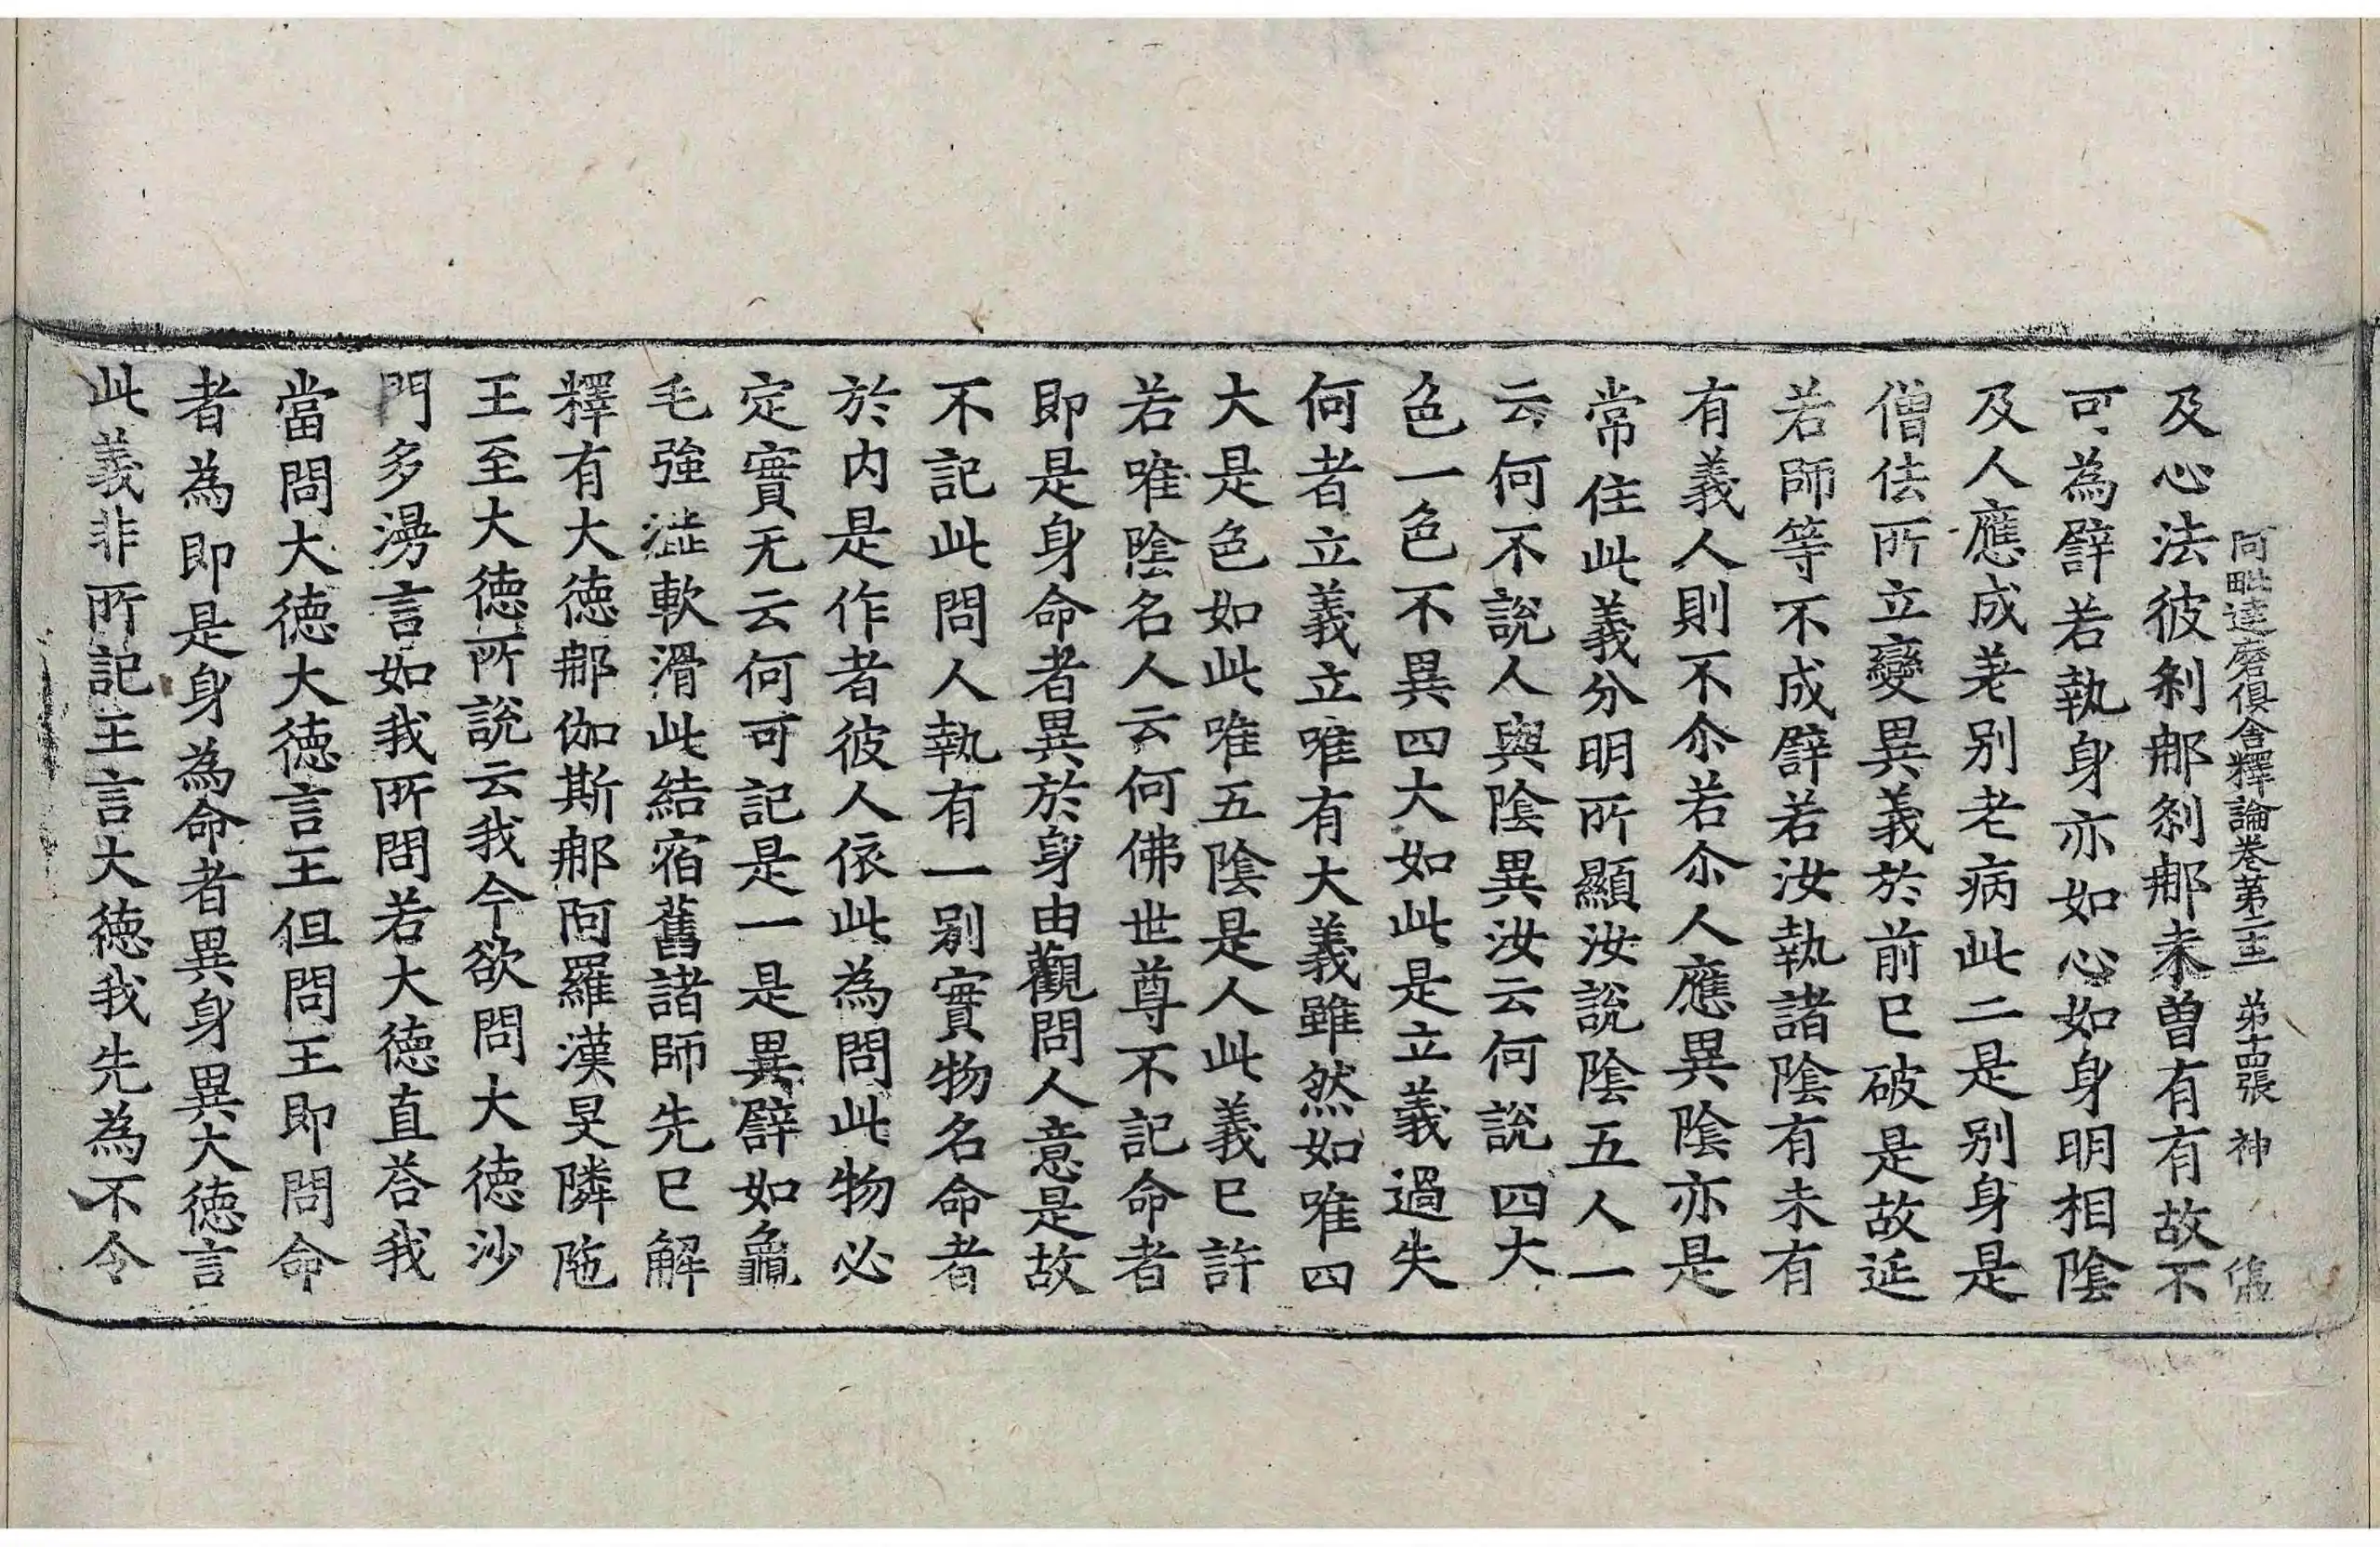 阿毗達磨俱舍釋論卷第二十二 第十四張 神
及心法彼剎那剎那未曾有有故不
可為譬若執身亦如心如身明相陰
及人應成老別老病此二是別身是
僧佉所立變異義於前已破是故延
若師等不成譬若汝執諸陰有未有
有義人則不尒若尒人應異陰亦是
常住此義分明所顯汝說陰五人一
云何不說人與陰異汝云何說四大
色一色不異四大如此是立義過失
何者立義立唯有大義雖然如唯四
大是色如此唯五陰是人此義已許
若唯陰名人云何佛世尊不記命者
即是身命者異於身由觀問人意是故
不記此問人執有一別實物名命者
於內是作者彼人依此為問此物必
定實无云何可記是一是異譬如龜
毛強澁軟滑此結宿舊諸師先已解
釋有大德那伽斯那阿羅漢旻隣陁
王至大德所說云我今欲問大德沙
門多漫言如我所問若大德直荅我
當問大德大德言王但問王即問命
者為即是身為命者異身異大德言
此義非所記王言大德我先為不令